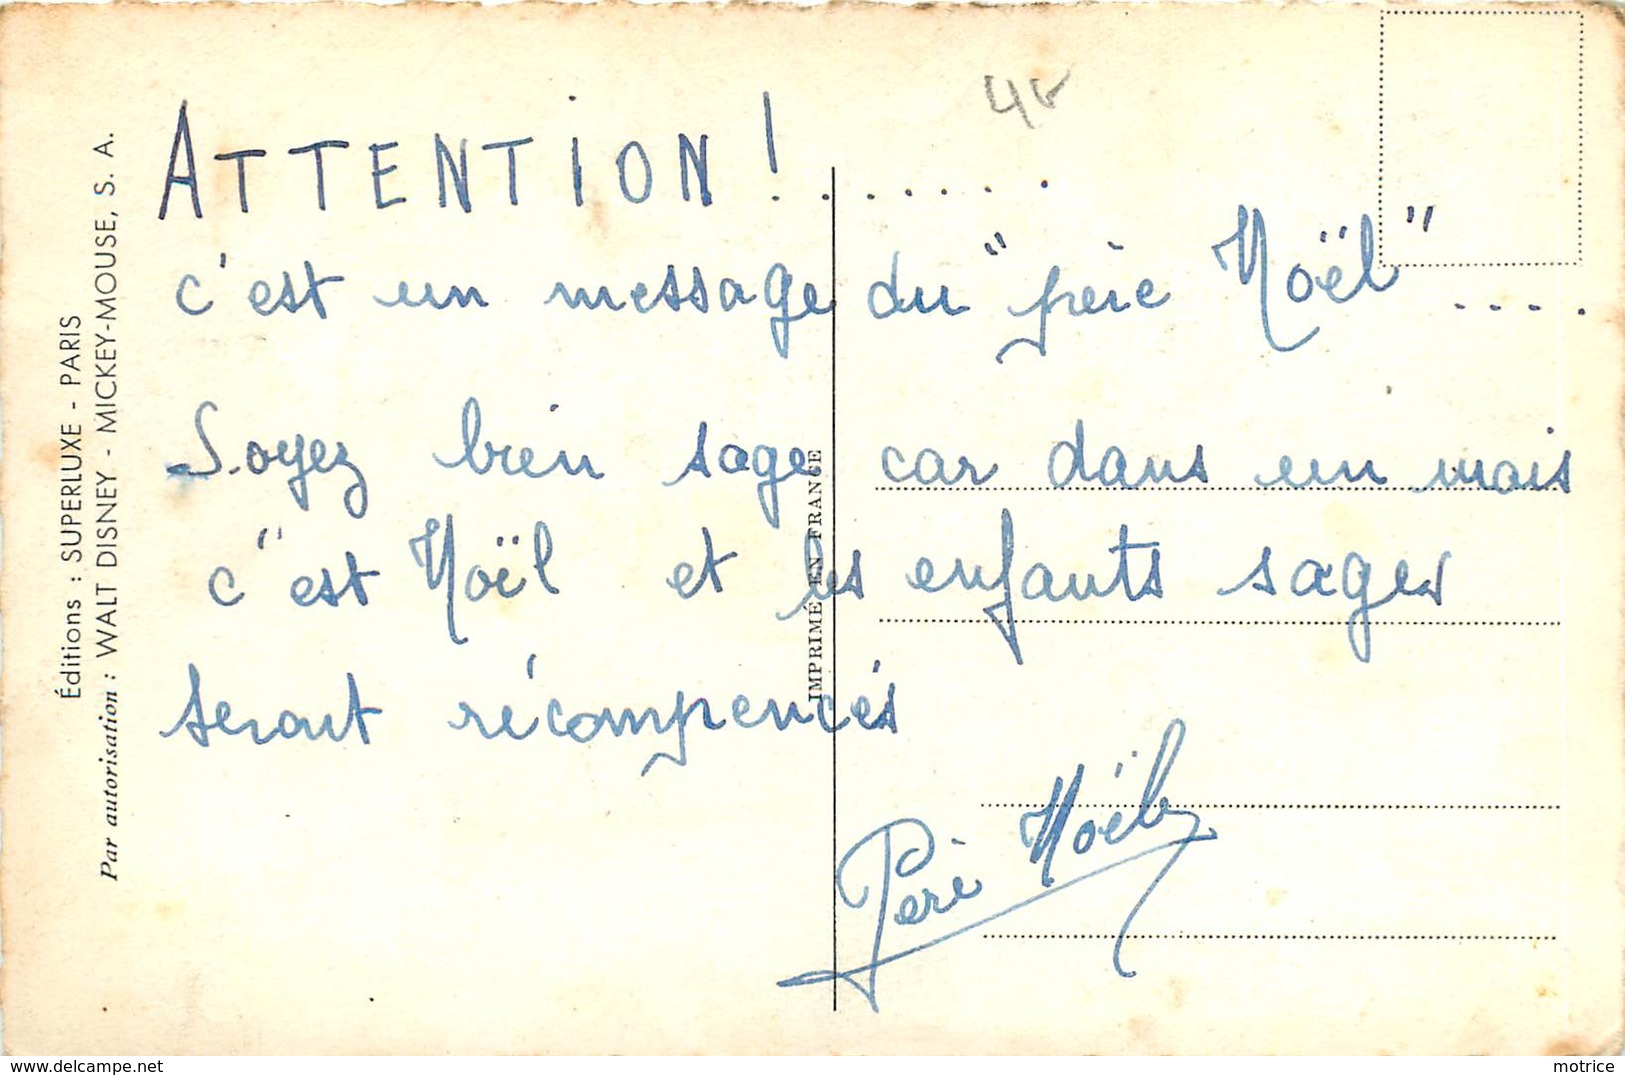 ATTENTION ! . . . . . . .
c'est un message du "père Noël" . . . .
Soyez bien sage car dans un mois
c'est Noël et les enfants sages
seront récompencés
Père Noël
Éditions : SUPERLUXE - PARIS
Par autorisation : WALT DISNEY - MICKEY-MOUSE, S. A.
IMPRIMÉ EN FRANCE
motrice